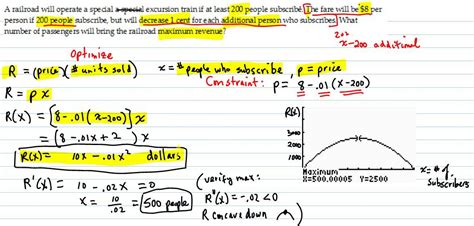 A railroad will operate a special a special excursion train if at least 200 people subscribe. The fare will be $8 per
person if 200 people subscribe, but will decrease 1 cent for each additional person who subscribes. What
number of passengers will bring the railroad maximum revenue?
202
x-200 additional
Optimize
R = (price)(# units sold)
x = # people who subscribe, p = price
Constraint: p = 8 - .01(x-200)
R = p x
R(x) = [8 - .01(x-200)] x
= (8 - .01x + 2) x
R(x) = 10x - .01x² dollars
R'(x) = 10 - .02x = 0
x = 10/.02 = 500 people
(verify max:
R"(x) = -.02 < 0
R concave down
R(x)
3000
2000
1000
Maximum
X=500.00005 Y=2500
x = # of
subscribers